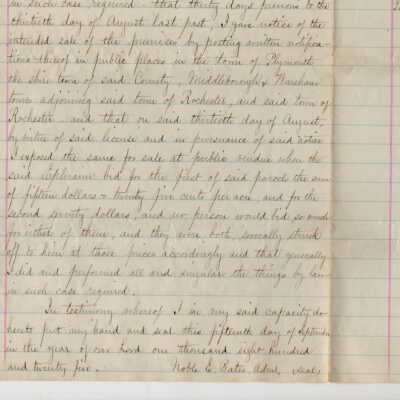 in such case required - that thirty days previous to the
thirtieth day of August last past, I gave notice of the
intended sale of the premises by posting written notifica-
tions thereof in public places in the town of Plymouth
the shire town of said County, Middleborough & Wareham
towns adjoining said town of Rochester, and said town of
Rochester and that on said thirtieth day of August,
by virtue of said license and in pursuance of said notice
I exposed the same for sale at public vendue when the
said Ephraim bid for the first of said parcels the sum
of fifteen dollars & twenty five cents per acre and for the
second seventy dollars, and no person would bid so much
for either of them, and they were both, severally struck
off to him at those prices accordingly and that generally
I did and performed all and singular the things by law
in such case required.
In testimony whereof I in my said capacity do
hereto put my hand and seal this fifteenth day of September
in the year of our Lord one thousand eight hundred
and twenty five. Noble E. Bates Admr, seal